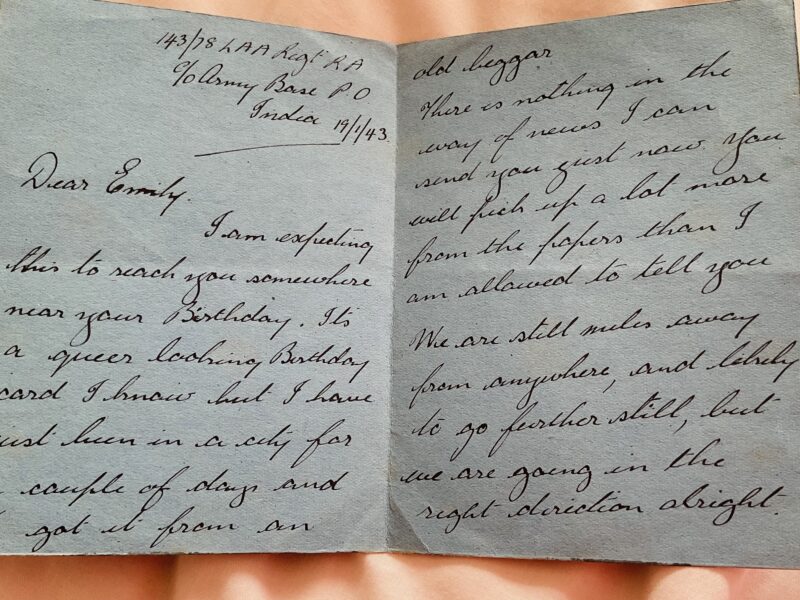 143/78 LAA Regt RA
c/o Army Base P O
India 19/1/43.
Dear Emily.
I am expecting
this to reach you somewhere
near your Birthday. Its
a queer looking Birthday
card I know but I have
just been in a city for
a couple of days and
got it from an
old beggar
There is nothing in the
way of news I can
send you just now. You
will pick up a lot more
from the papers than I
am allowed to tell you
We are still miles away
from anywhere, and likely
to go further still, but
we are going in the
right direction alright.